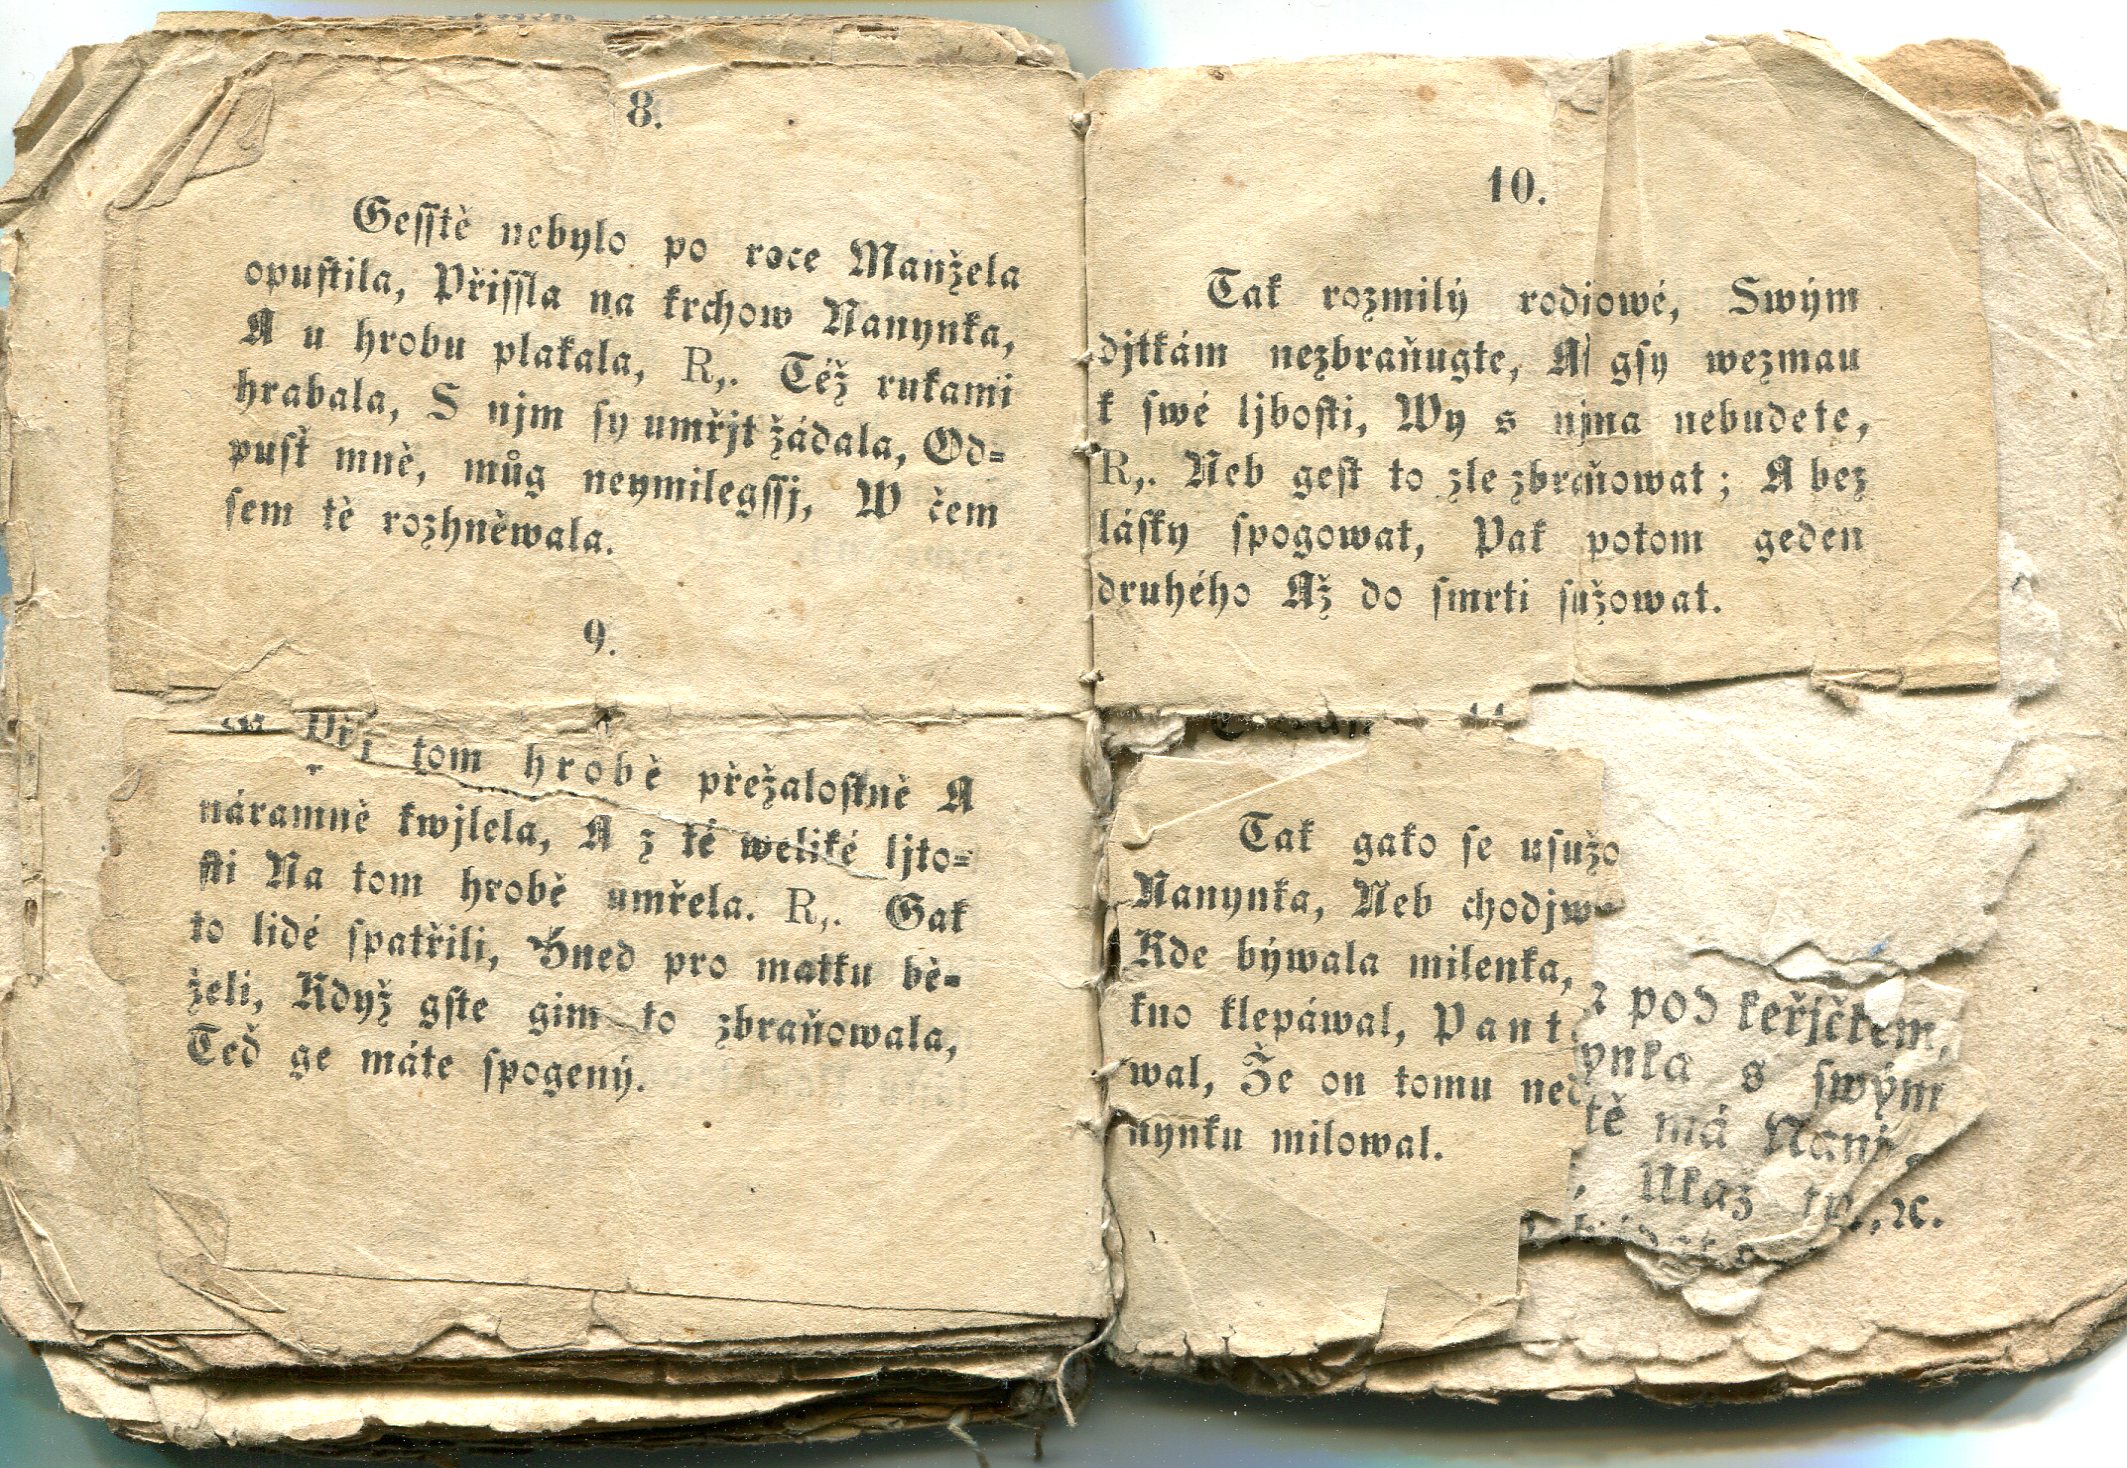 8.
Gesstě nebylo po roce Manžela
opustila, Přissla na krchow Nanynka,
A u hrobu plakala, R,. Též rukami
hrabala, S njm sy umřjt žádala, Od=
pusť mně, můg neymilegssj, W čem
sem tě rozhněwala.
9.
Při tom hrobě přežalostně A
náramně kwjlela, A z té weliké ljto=
sti Na tom hrobě umřela. R,. Gak
to lidé spatřili, Hned pro matku bě=
želi, Když gste gim to zbraňowala,
Teď ge máte spogený.
10.
Tak rozmilý rodiowé, Swým
djtkám nezbraňugte, Ať gsy wezmau
k swé ljbosti, Wy s njma nebudete,
R,. Neb gest to zle zbraňowat; A bez
lásky spogowat, Pak potom geden
druhého Až do smrti sužowat.
11
Tak gako se usužo
Nanynka, Neb chodjw
Kde býwala milenka,
kno klepáwal, Pant
wal, Že on tomu ned
nynku milowal.
pod keřjčkem,
ynka s swým
tě má Nany
Ukaz tw., ꝛc.